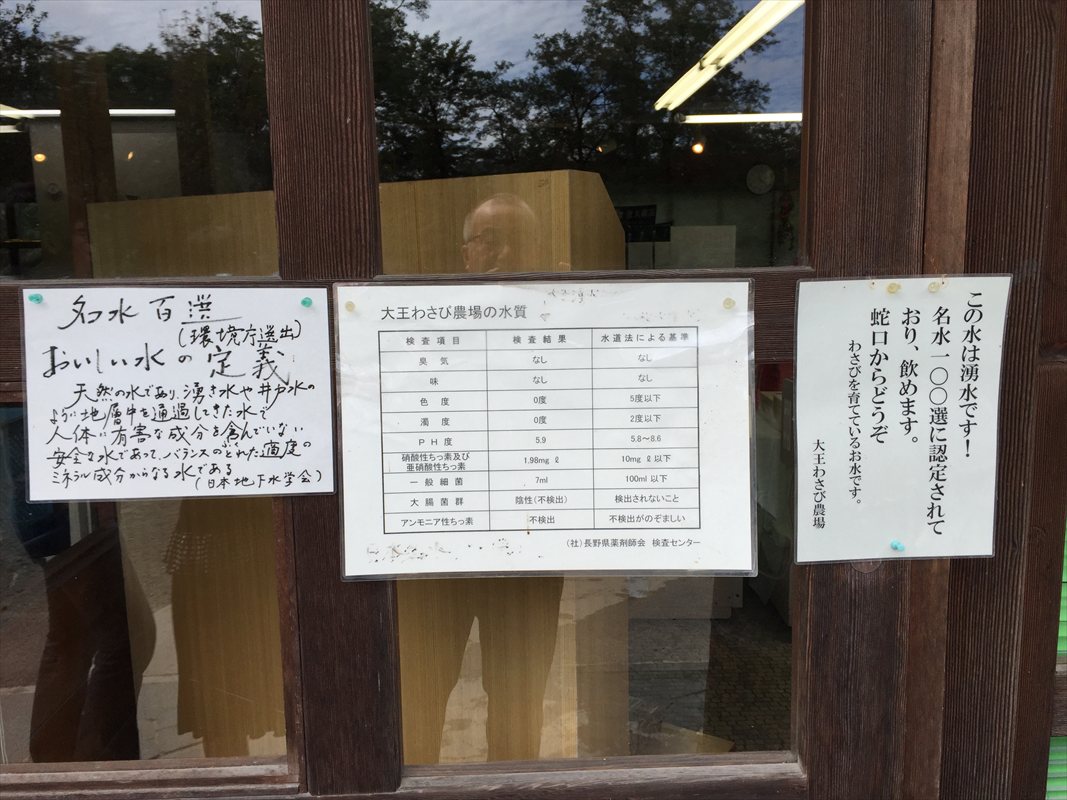 名水百選
(環境庁選出)
おいしい水の定義
天然の水であり、湧き水や井戸水の
ように地層中を通過してきた水で
人体に有害な成分を含んでいない
安全な水であって、バランスのとれた適度の
ミネラル成分からなる水である
(日本地下水学会)
大王わさび農場の水質
検査項目 検査結果 水道法による基準
臭気 なし なし
味 なし なし
色度 0度 5度以下
濁度 0度 2度以下
PH度 5.9 5.8〜8.6
硝酸性ちっ素及び
亜硝酸性ちっ素 1.98mgℓ 10mgℓ以下
一般細菌 7ml 100ml以下
大腸菌群 陰性(不検出) 検出されないこと
アンモニア性ちっ素 不検出 不検出がのぞましい
(社)長野県薬剤師会 検査センター
この水は湧水です!
名水一〇〇選に認定されて
おり、飲めます。
蛇口からどうぞ
わさびを育てているお水です。
大王わさび農場